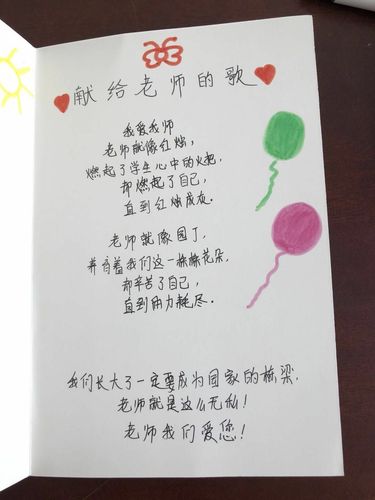 献给老师的歌
我爱我师
老师就像红烛，
燃起了学生心中的火把，
却燃起了自己，
直到红烛成灰．
老师就像园丁，
养育着我们这一株株花朵，
却辛苦了自己，
直到用力耗尽．
我们长大了一定要成为国家的栋梁．
老师就是这么无私！
老师我们爱您！